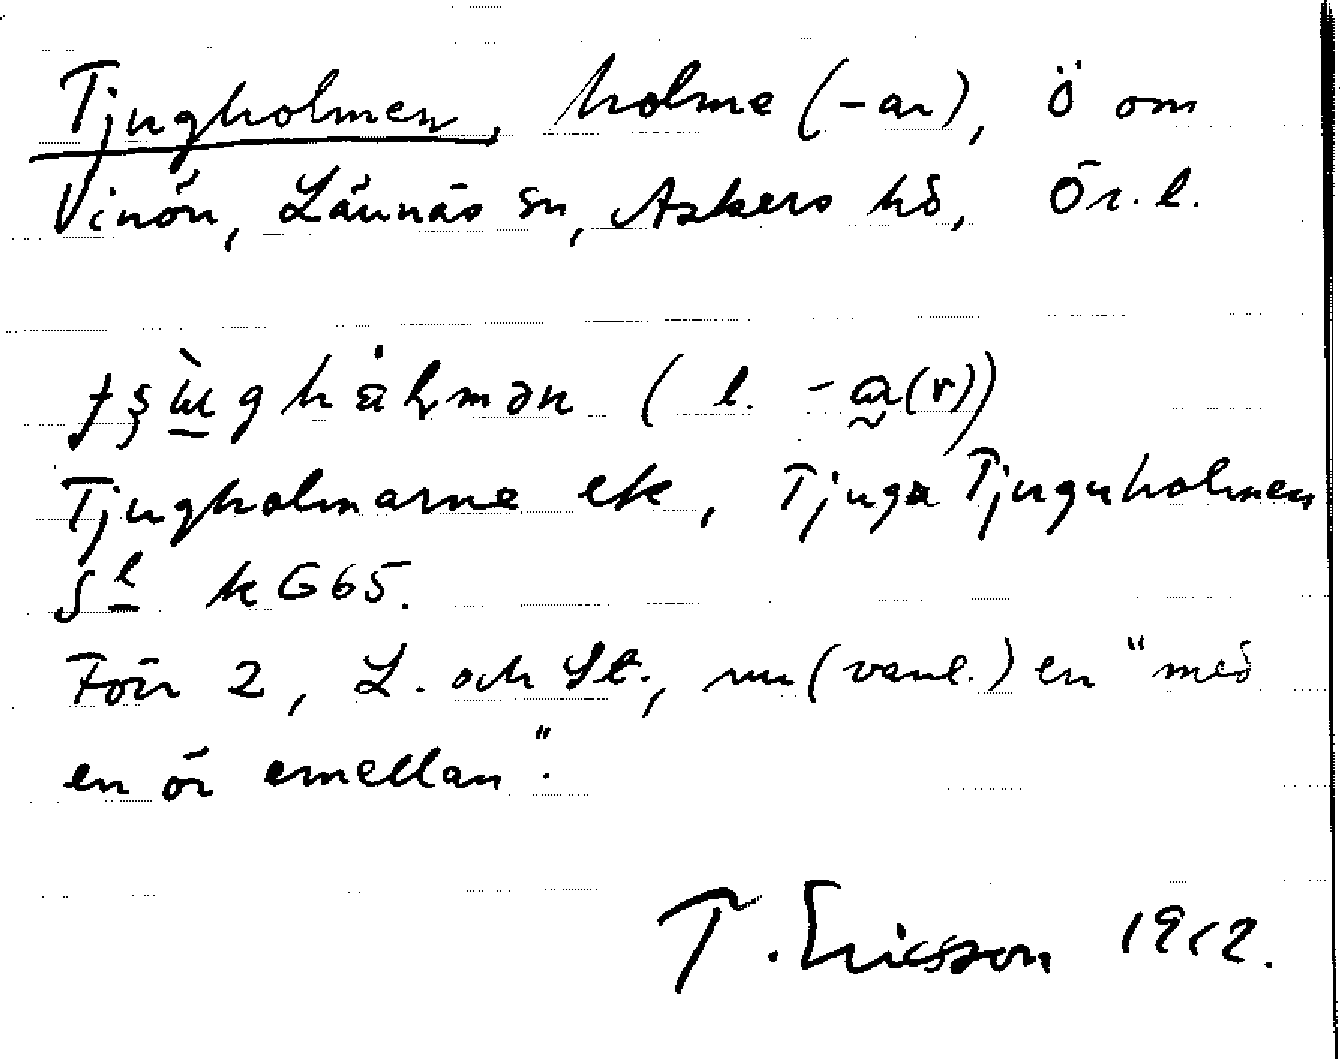 Tjugholmen, holme (-ar), Ö om
Vinön, Lännäs sn, Askers hd, Ör. l.
( l. -a(r))
Tjugholmarne ek, Tjuga Tjuguholmen
kG65.
Förr 2, L. och St., nu (vanl.) en "med
en ör emellan".
T. Ericsson 1912.